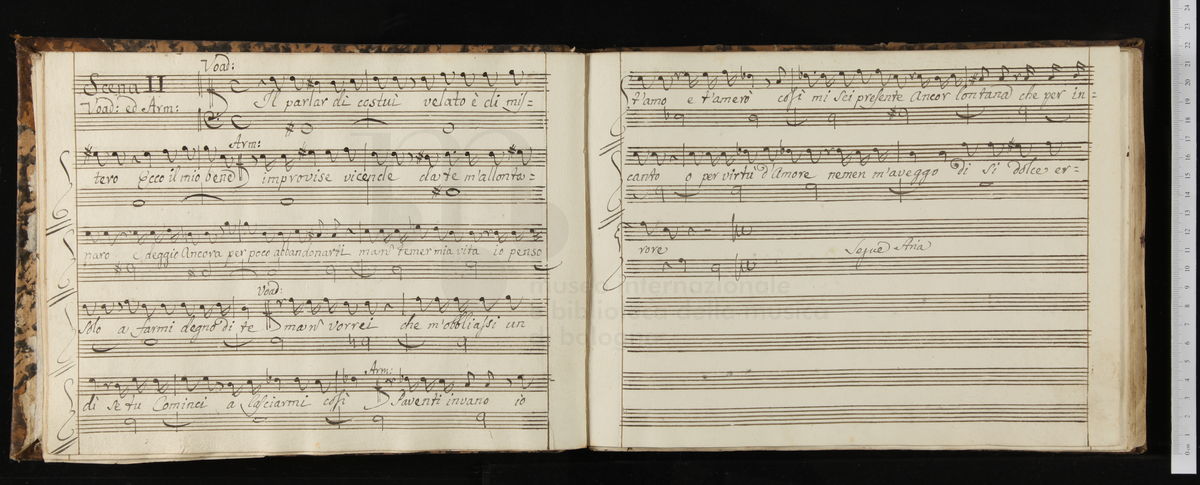 Scena II
Voad: ed Arm:
Voad:
Il parlar di costui velato è di mis=
Arm:
tero Ecco il mio bene improvise vicende da te m'allonta=
naro E deggio Ancora per poco abbandonarti mà tù temer mia vita io penso
Voad:
solo a farmi degno di te mà tù vorrei che m'obbliassi un
Arm:
dì se tu Cominci a Lasciarmi così Paventi invano io
t'amo e t'amerò così mi sei presente Ancor lontana che per in=
canto o per virtù d'Amore nemen m'aveggo di sì dolce er=
rore
Segue Aria
museo internazionale
e biblioteca della musica
di bologna